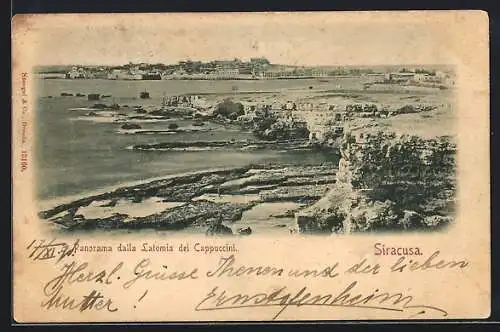 Stengel & Co., Dresda 13160.
Panorama dalla Latomia dei Cappuccini.
Siracusa.
Herzl. Grüsse Ihnen und der lieben
Mutter!